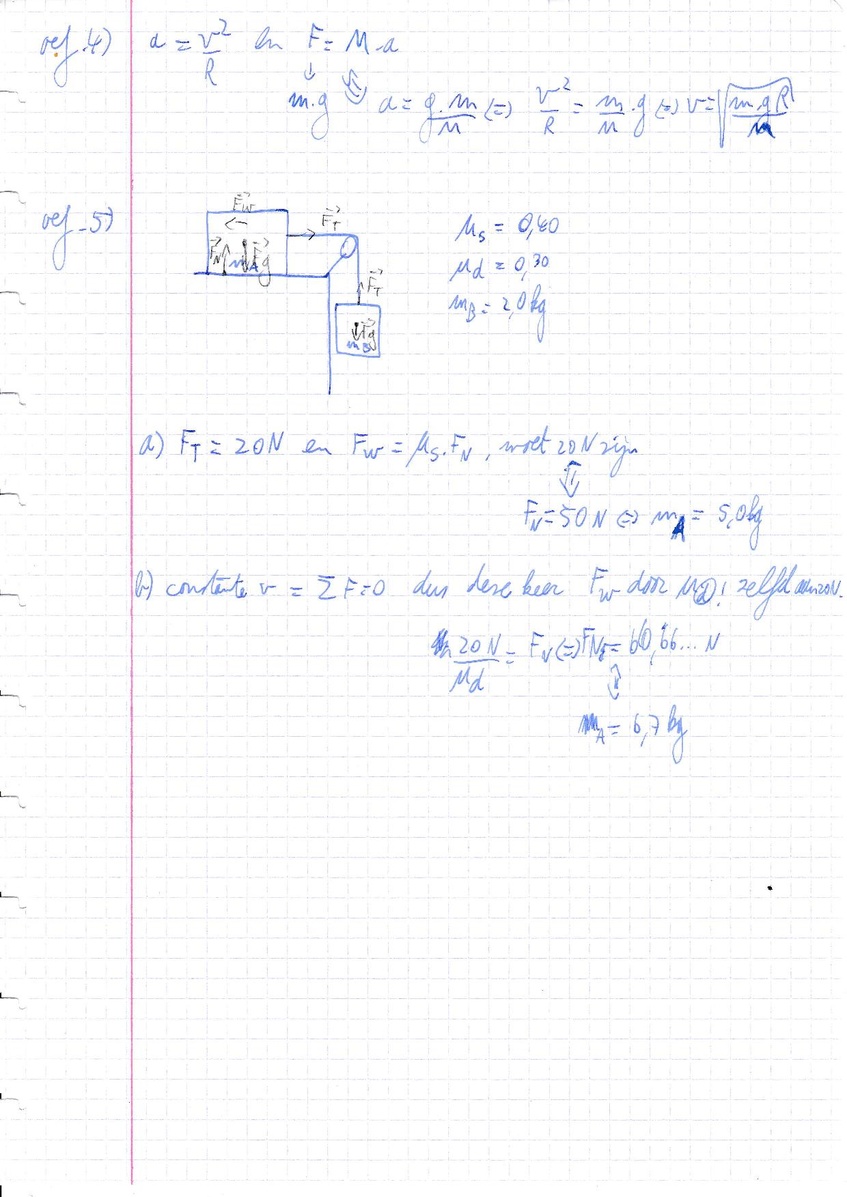 oef.4) a = v²/R en F = M.a
m.g a = g.m/M <=> v²/R = m/M .g <=> v = √(m.gR/m)
oef.5)
F⃗w F⃗T
F⃗N mA F⃗g
F⃗T
F⃗g
mB
μs = 0,40
μd = 0,30
mB = 2,0kg
a) FT = 20N en Fw = μs.FN, moet 20N zijn
FN = 50N <=> mA = 5,0kg
b) constante v = ΣF=0 dus deze keer Fw door μD!
20N/μd = FN <=> FN = 60,66... N
mA = 6,7kg